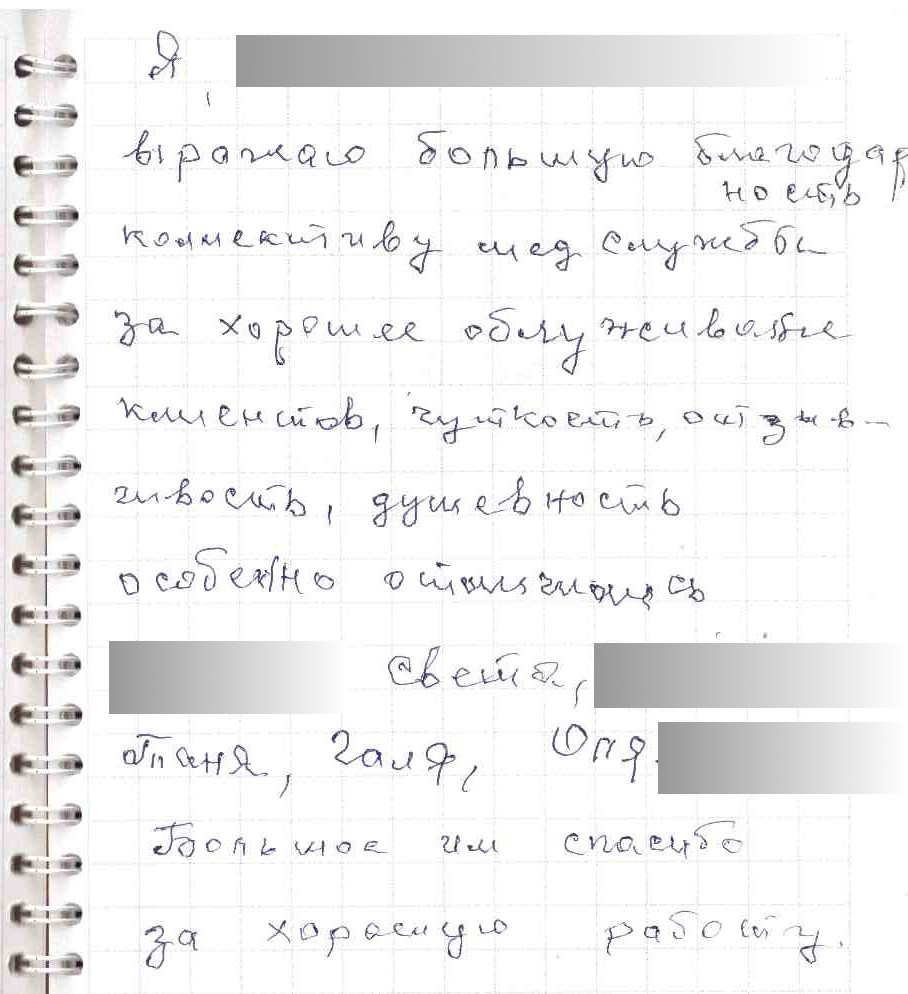 Я
выражаю большую благодар
ность
коллективу мед службы
за хорошее обслуживание
клиентов, чуткость, отзыв-
чивость, душевность
особенно отличилась
Света,
Таня, Галя, Оля.
Большое им спасибо
за хорошую работу.